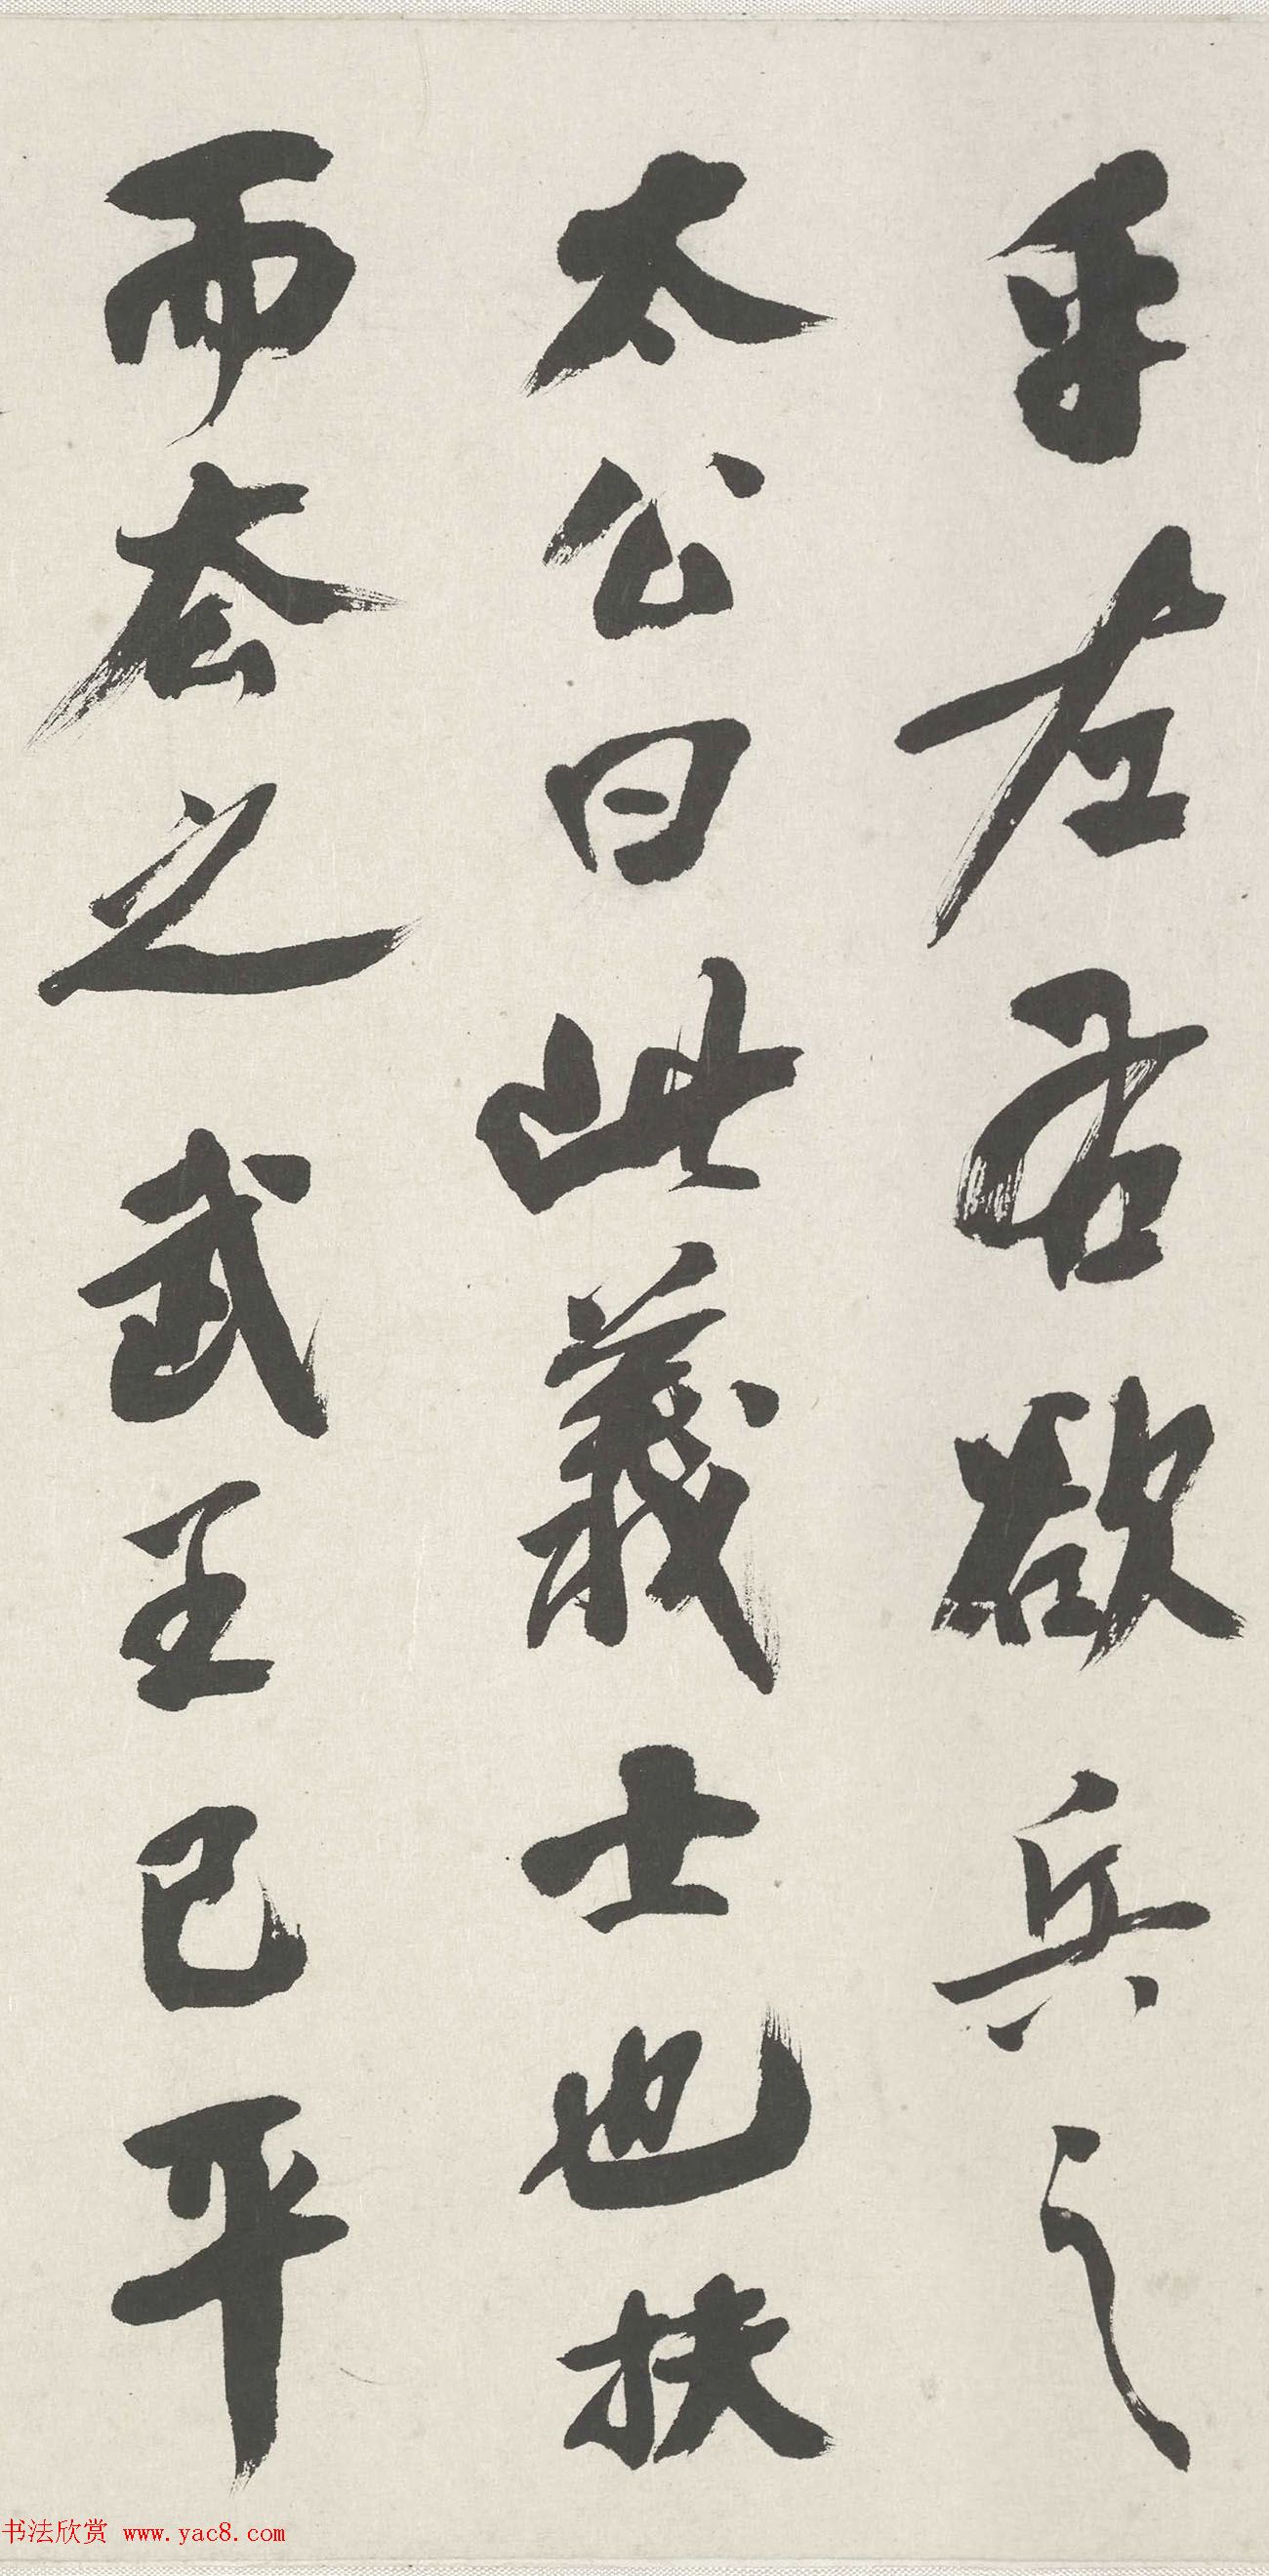 乎左右欲兵之
太公曰此義士也扶
而去之武王已平
书法欣赏 www.yac8.com